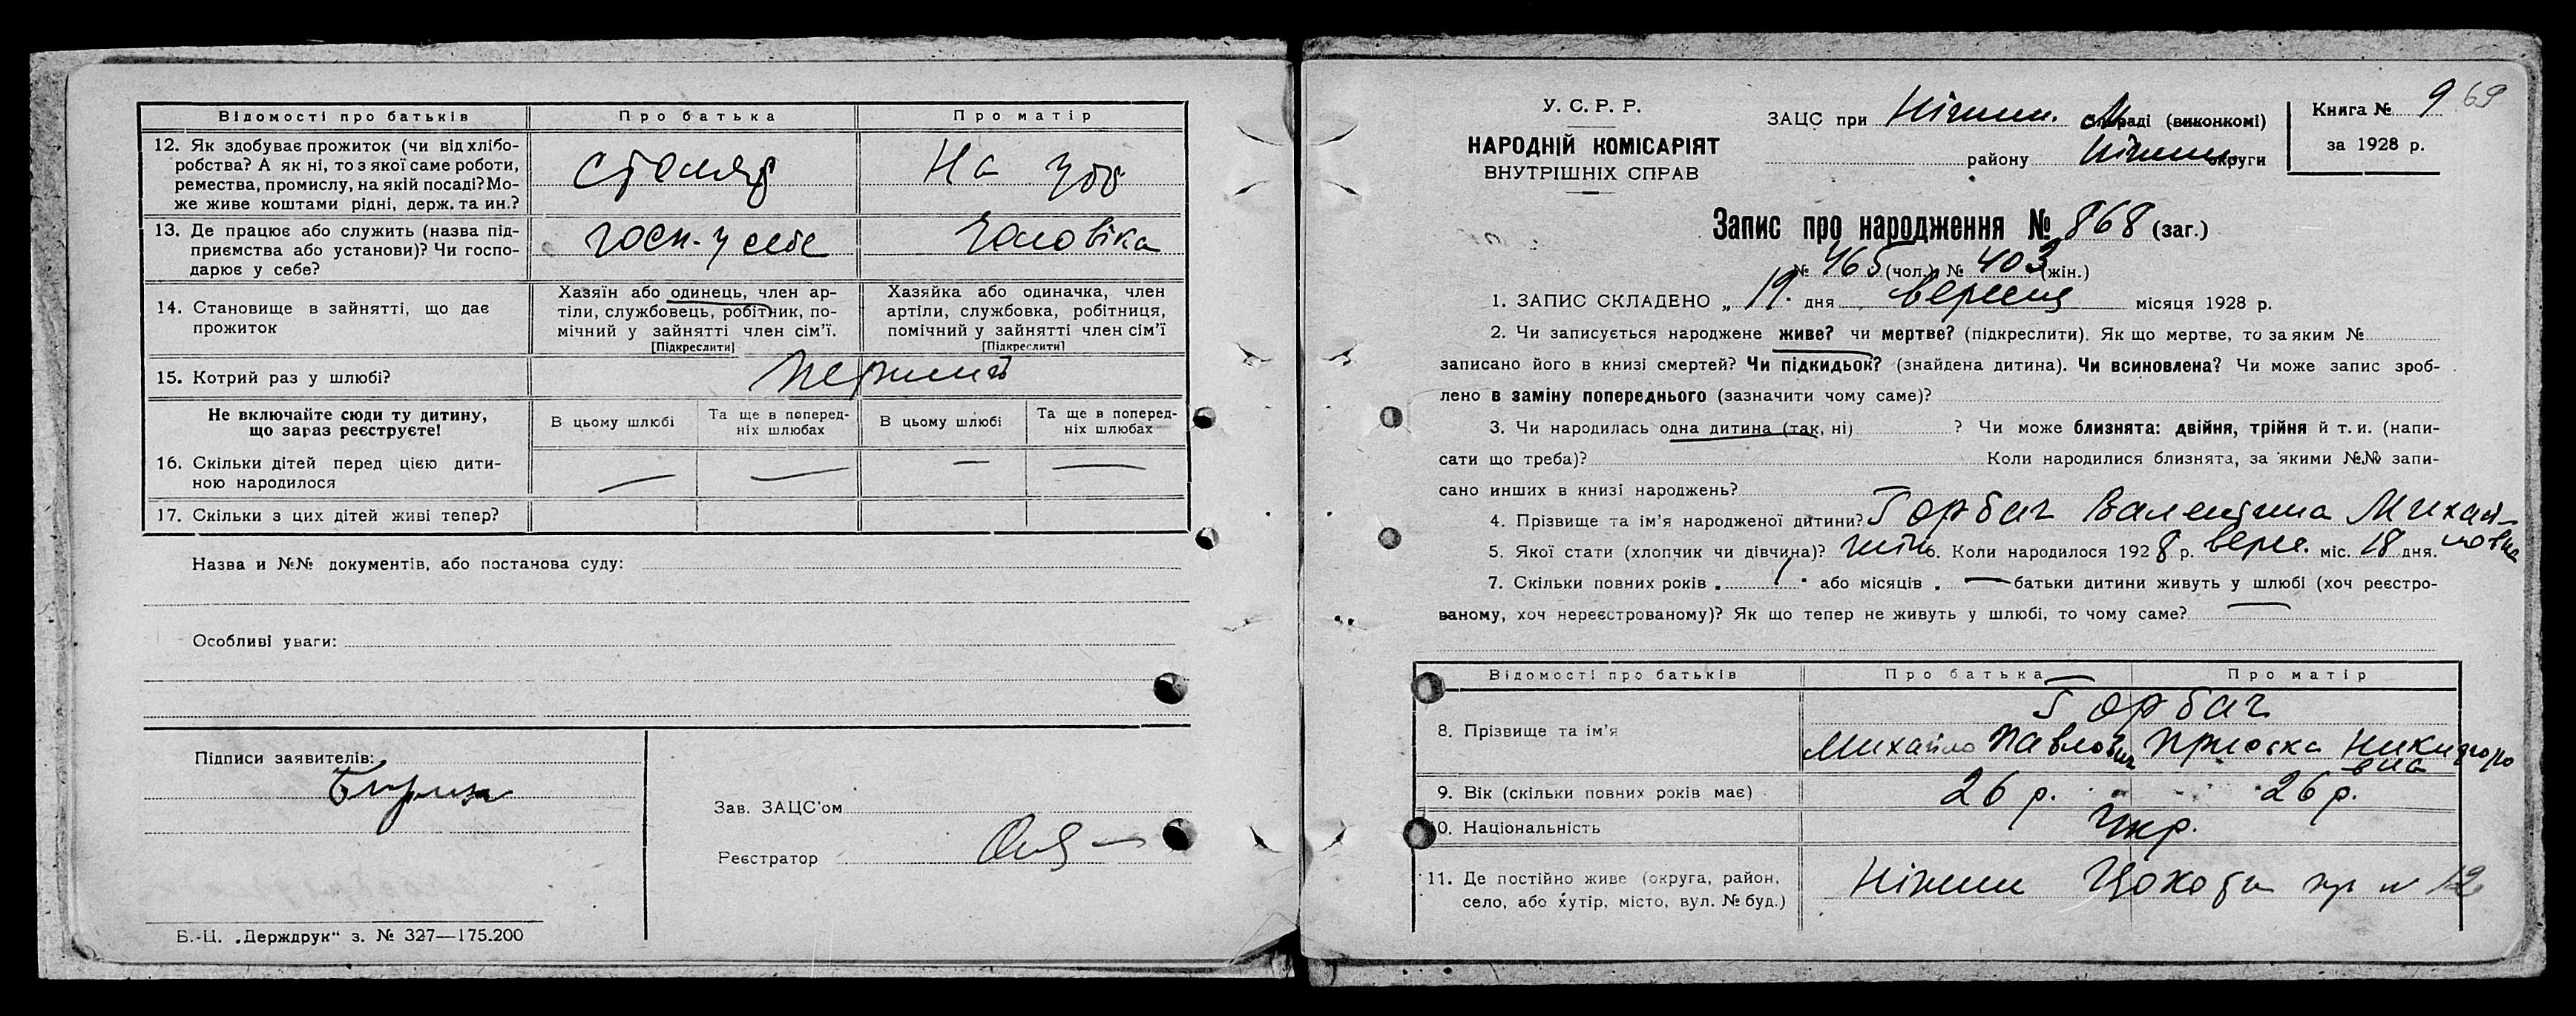 Відомості про батьків Про батька Про матір
12. Як здобуває прожиток (чи від хлібо-
робства? А як ні, то з якої саме роботи,
ремества, промислу, на якій посаді? Мо-
же живе коштами рідні, держ. та ин.?
столяр На утр
13. Де працює або служить (назва під-
приємства або установи)? Чи госпо-
дарює у себе?
госп. у себе чоловіка
14. Становище в зайнятті, що дає
прожиток
Хазяїн або одинець, член ар-
тіли, службовець, робітник, по-
мічний у зайнятті член сім'ї.
[Підкреслити]
Хазяйка або одиначка, член
артіли, службовка, робітниця,
помічний у зайнятті член сім'ї
[Підкреслити]
15. Котрий раз у шлюбі? перший
Не включайте сюди ту дитину,
що зараз реєструєте!
В цьому шлюбі Та ще в поперед-
ніх шлюбах В цьому шлюбі Та ще в поперед-
ніх шлюбах
16. Скільки дітей перед цією дити-
ною народилося — — — —
17. Скільки з цих дітей живі тепер?
Назва и №№ документів, або постанова суду:
Особливі уваги:
Підписи заявителів:
Зав. ЗАЦС'ом
Реєстратор
Б.-Ц. „Держдрук“ з. № 327—175.200
У. С. Р. Р.
НАРОДНІЙ КОМІСАРІЯТ
ВНУТРІШНІХ СПРАВ
ЗАЦС при Ніжин. раді (виконкомі)
району Ніжин округи
Книга № 9 69
за 1928 р.
Запис про народження № 868 (заг.)
№ 465 (чол.) № 403 (жін.)
1. ЗАПИС СКЛАДЕНО „ 19. дня вересня місяця 1928 р.
2. Чи записується народжене живе? чи мертве? (підкреслити). Як що мертве, то за яким №
записано його в книзі смертей? Чи підкидьок? (знайдена дитина). Чи всиновлена? Чи може запис зроб-
лено в заміну попереднього (зазначити чому саме)?
3. Чи народилась одна дитина (так, ні) ? Чи може близнята: двійня, трійня й т. и. (напи-
сати що треба)? Коли народилися близнята, за якими №№ запи-
сано инших в книзі народжень?
4. Прізвище та ім'я народженої дитини? Горбач Валентина Михай-
ловна
5. Якої стати (хлопчик чи дівчина)? жін 6. Коли народилося 1928 р. верес. міс. 18 дня.
7. Скільки повних років „ 1 “ або місяців „ — батьки дитини живуть у шлюбі (хоч реєстро-
ваному, хоч нереєстрованому)? Як що тепер не живуть у шлюбі, то чому саме? —
Відомості про батьків Про батька Про матір
8. Прізвище та ім'я Горбач
Михайло Павлович Приська Никифоро
вна
9. Вік (скільки повних років має) 26 р. 26 р.
10. Національність Укр.
11. Де постійно живе (округа, район,
село, або хутір, місто, вул. № буд.)
Ніжин № 12